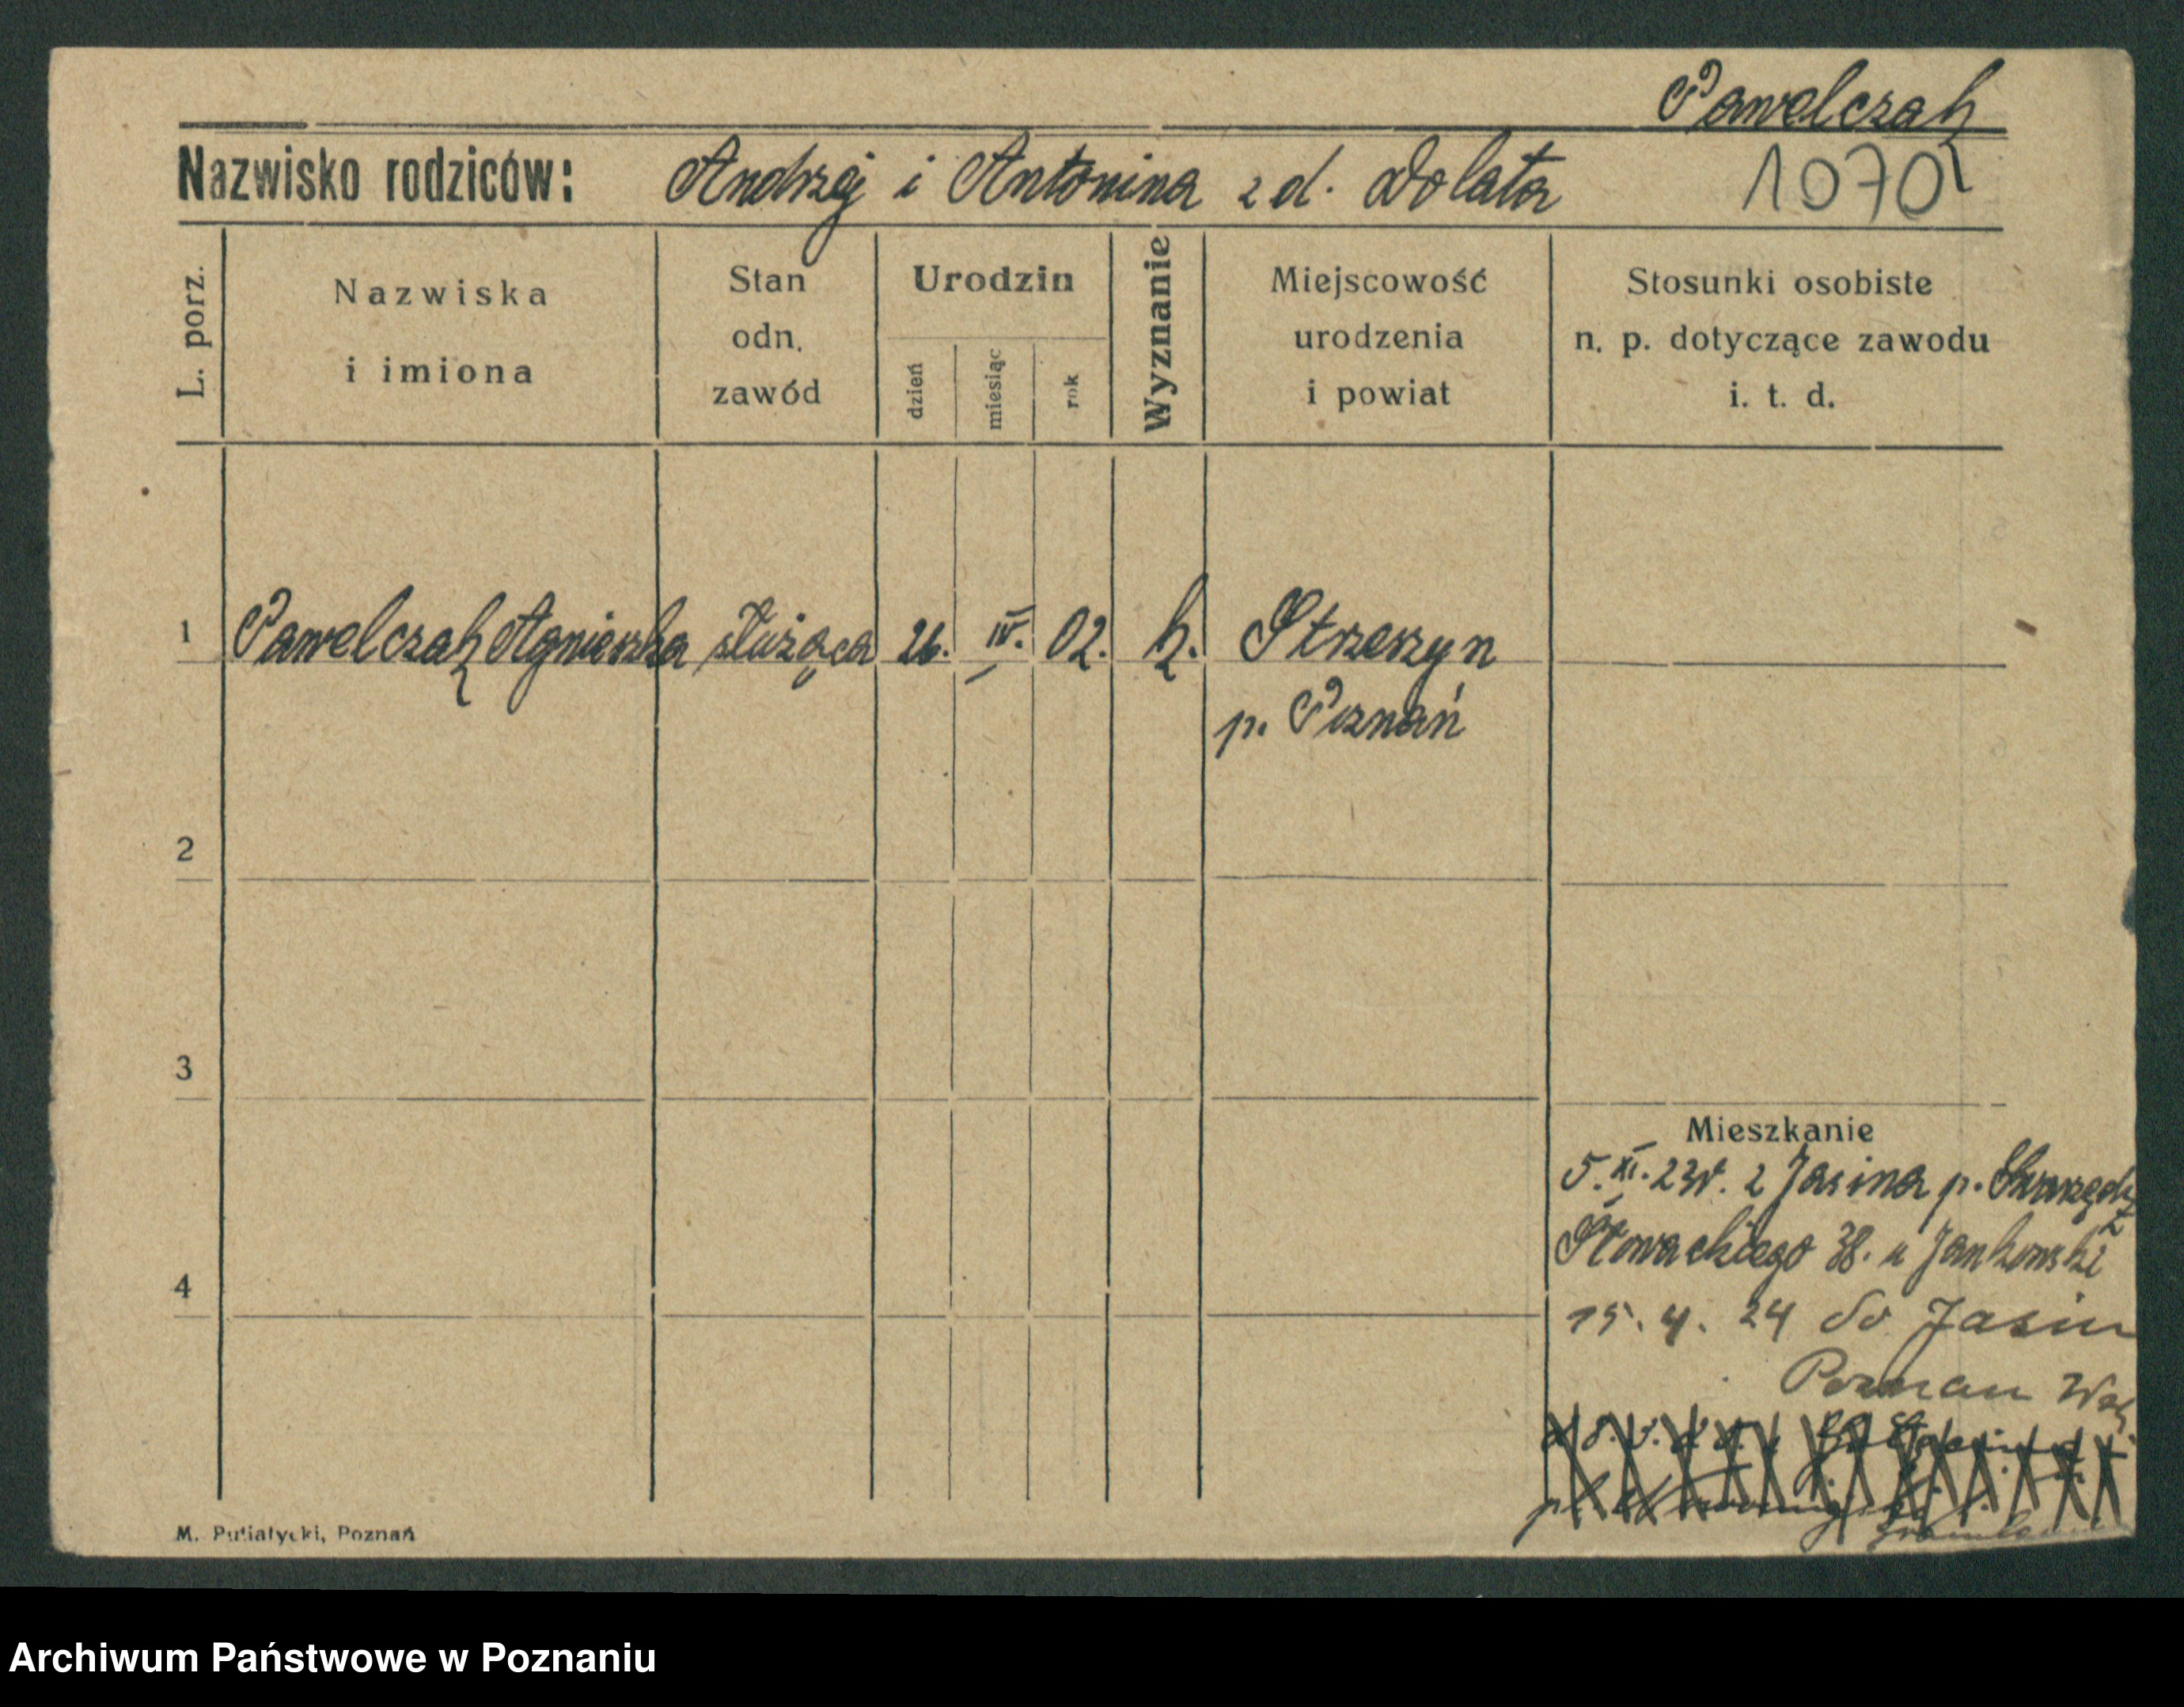 Pawelczak
Nazwisko rodziców: Andrzej i Antonina z d. Dolata 1070
L. porz.
Nazwiska
i imiona
Stan
odn.
zawód
Urodzin
dzień
miesiąc
rok
Wyznanie
Miejscowość
urodzenia
i powiat
Stosunki osobiste
n. p. dotyczące zawodu
i. t. d.
1 Pawelczak Agnieszka służąca 26. IV. 02. k. Strzeszyn
p. Poznań
2
3
Mieszkanie
5. XI. 23r. z Jasina p. Swarzędz
Słowackiego 38. u Jankowski
4
15. 4. 24 do Jasin
Poznan
M. Putiatycki, Poznań
Archiwum Państwowe w Poznaniu